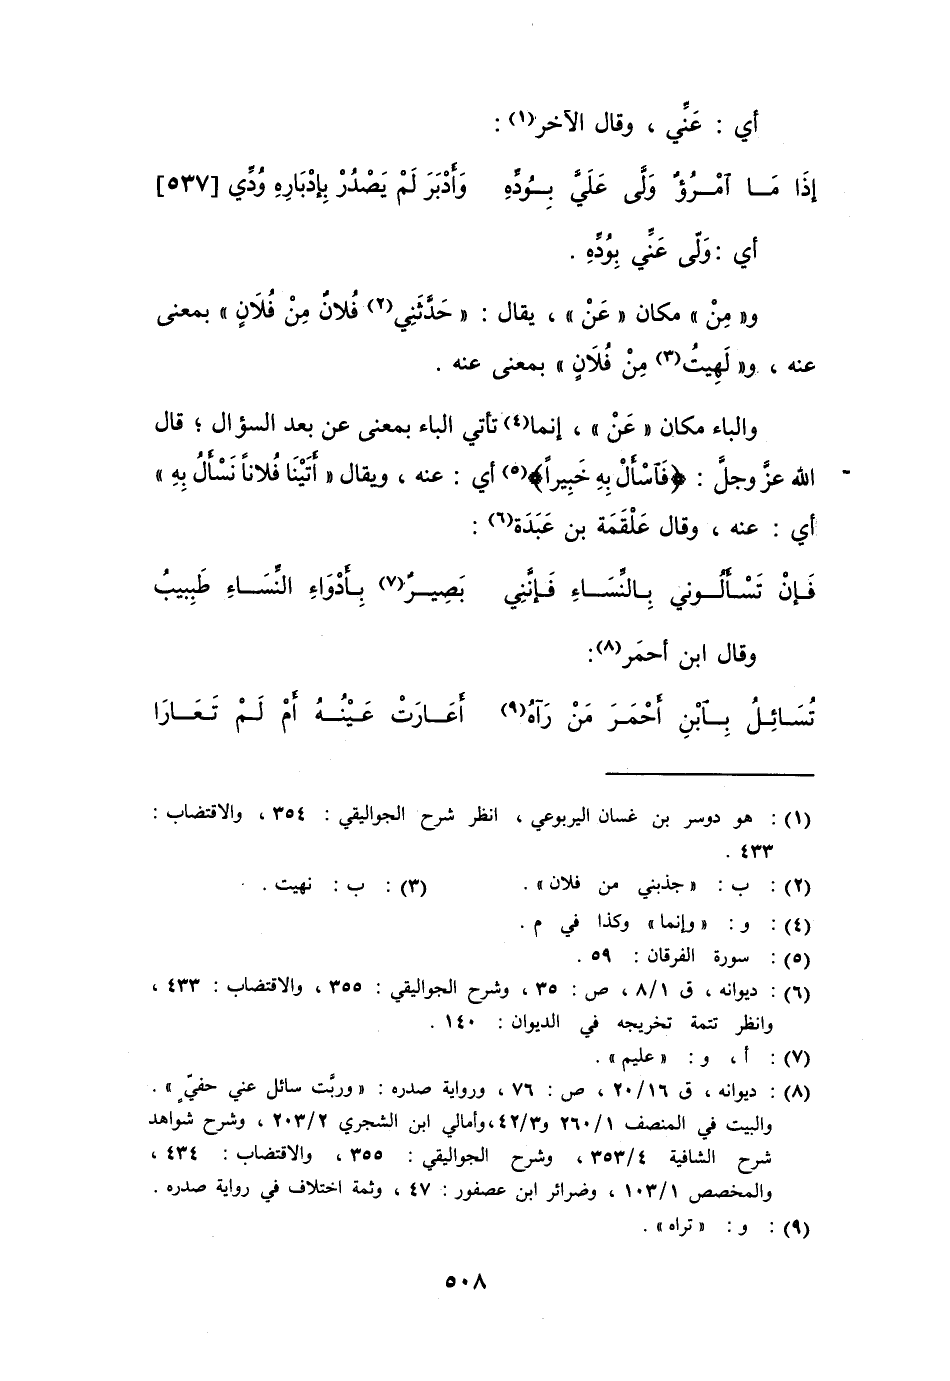 أي : عَنِّي ، وقال الآخر(١) :
إذَا مَـا آمْـرُؤٌ وَلَّى عَلَيَّ بِـوُدِّهِ وَأَدْبَرَ لَمْ يَصْدُرْ بِإدْبَارِهِ وُدِّي [٥٣٧]
أي : وَلّى عَنِّي بِوُدِّهِ .
و« مِنْ » مكان « عَنْ » ، يقال : « حَدَّثَنِي(٢) فُلانٌ مِنْ فُلَانٍ » بمعنى
عنه ، و« لَهِيتُ(٣) مِنْ فُلَانٍ » بمعنى عنه .
والباء مكان « عَنْ » ، إنما(٤) تأتي الباء بمعنى عن بعد السؤال ؛ قال
الله عزَّ وجلَّ : ﴿فَآسْأَلْ بِهِ خَبِيراً﴾(٥) أي : عنه ، ويقال « أَتَيْنَا فُلاناً نَسْأَلُ بِهِ »
أي : عنه ، وقال عَلْقَمَة بن عَبَدَة(٦) :
فَـإنْ تَسْـأَلُـوني بِـالنِّسَـاءِ فَـإنَّنِي بَصِيـرٌ(٧) بِـأَدْوَاءِ النِّسَـاءِ طَبِيبُ
وقال ابن أحمَر(٨):
تُسَـائِـلُ بِـآبْنِ أَحْمَـرَ مَنْ رَآهُ(٩) أَعَـارَتْ عَيْنُـهُ أَمْ لَـمْ تَعَـارَا
(١) : هو دوسر بن غسان اليربوعي ، انظر شرح الجواليقي : ٣٥٤ ، والاقتضاب :
٤٣٣ .
(٢) : ب : « جذبني من فلان» . (٣) : ب : نهيت .
(٤) : و : « وإنما» وكذا في م .
(٥) : سورة الفرقان : ٥٩ .
(٦) : ديوانه ، ق ٨/١ ، ص : ٣٥ ، وشرح الجواليقي : ٣٥٥ ، والاقتضاب : ٤٣٣ ،
وانظر تتمة تخريجه في الديوان : ١٤٠ .
(٧) : أ ، و : « عليم» .
(٨) : ديوانه ، ق ٢٠/١٦ ، ص : ٧٦ ، ورواية صدره : « وربَّت سائل عني حفيّ » .
والبيت في المنصف ٢٦٠/١ و٤٢/٣،وأمالي ابن الشجري ٢٠٣/٢ ، وشرح شواهد
شرح الشافية ٣٥٣/٤ ، وشرح الجواليقي : ٣٥٥ ، والاقتضاب : ٤٣٤ ،
والمخصص ١٠٣/١ ، وضرائر ابن عصفور : ٤٧ ، وثمة اختلاف في رواية صدره .
(٩) : و : « تراه» .
٥٠٨